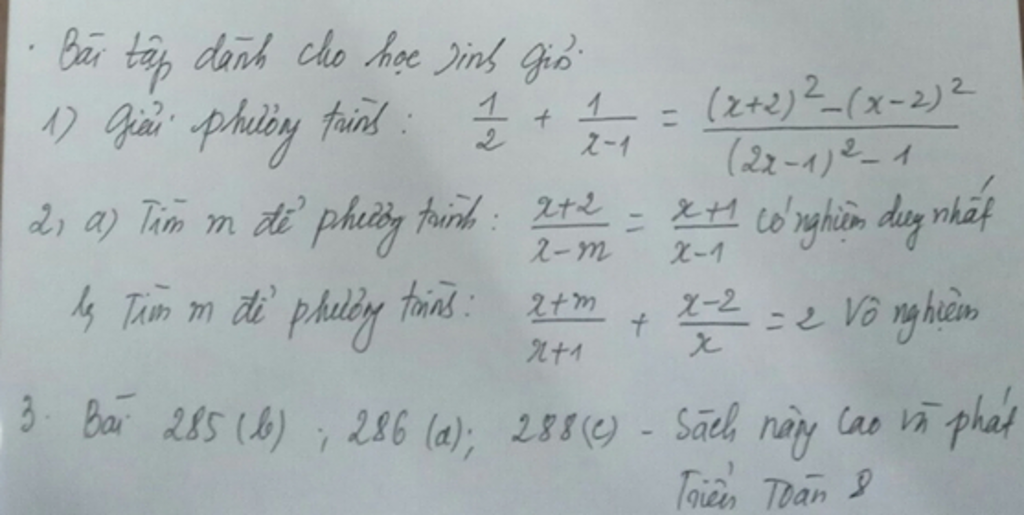 . Bài tập dành cho học sinh giỏi
1) Giải phường trình: 1/2 + 1/(x-1) = ((x+2)² - (x-2)²)/((2x-1)² - 1)
2, a) Tìm m để phường trình: (x+2)/(x-m) = (x+1)/(x-1) có nghiệm duy nhất
b, Tìm m để phường trình: (x+m)/(x+1) + (x-2)/x = 2 Vô nghiệm
3. Bài 285 (b) ; 286 (a); 288(c) - Sách này cao và phát
Triển Toán 8